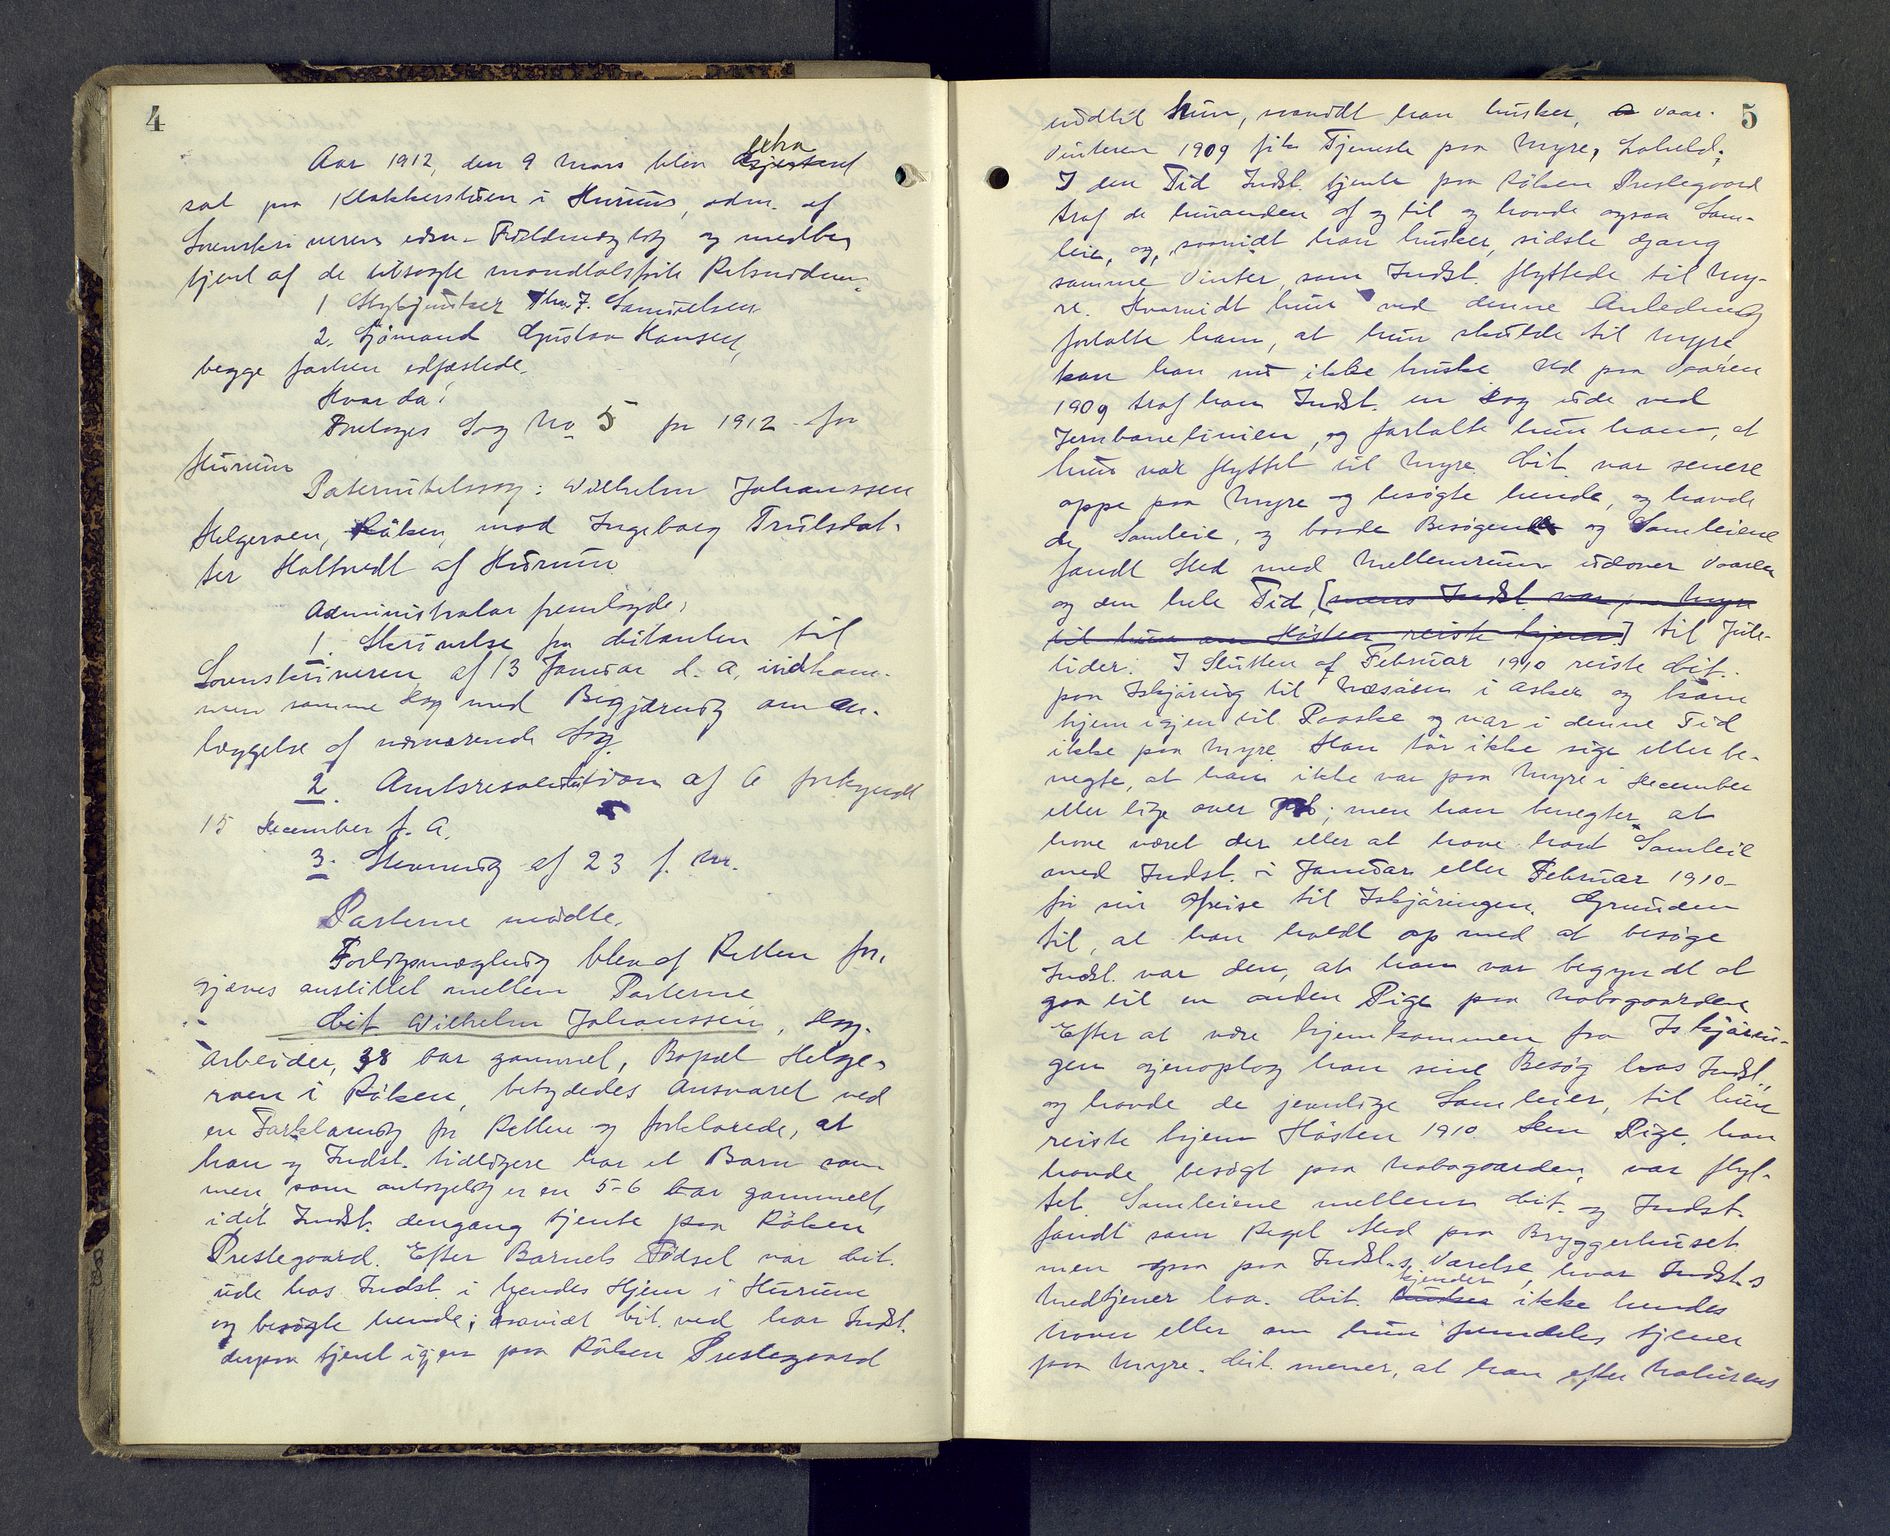 4
Aar 1912, den 9 Mars blev extra
sat paa Klokkerstuen i Hurum, adm. af
Sorenskriverens edsv. Fuldmægtig og medbe
tjent af de tilsagte mandtalsførte Retsvidner:
1 Skytjuntser Thv. J. Samuelsen
2. Sjømand Gustav Hansen,
begge forhen edfæstede.
Hvor da:
Foretoges Sag No 5 for 1912 for
Hurum
Paternitetssag: Wilhelm Johanssen
Helgeroen, Røken, mod Ingeborg Trulsdat-
ter Holtnedt af Hurum
Administrator fremlagde:
1. Skrivelse fra Citanten til
Sorenskriveren af 13 Januar d. A, indkom-
men samme Dag med Begjæring om An-
læggelse af nærværende Sag
2. Amtsresolution af 6 forkyndt
15 December f. A.
3. Stevning af 23 f. M.
Parterne mødte.
Forligsmægling blev af Retten for-
gjæves anstillet mellem Parterne
Cit Wilhelm Johanssen, Dag-
arbeider, 38 Aar gammel, Bopæl Helge-
roen i Røken, betydedes Ansvaret ved
en Forklaring for Retten og forklarede, at
han og Indst. tidligere har et Barn sam-
men som antagelig er en 5-6 Aar gammelt,
idet Indst. dengang tjente paa Røken
Prestegaard. Efter Barnets Fødsel var Cit.
ude hos Indst. i hendes Hjem i Hurum
og besøgte hende; saavidt Cit. ved har Indst.
derpaa tjent igjen paa Røken Prestegaard
5
indtil hun, saavidt han husker, Vaar-
Vinteren 1909 fik Tjeneste paa Myre,
I den Tid Indst. tjente paa Røken Prestegaard
traf de hinanden af og til og havde ogsaa Sam-
leie, og, saavidt han husker, sidste Gang
samme Vinter, som Indst. flyttede til My-
re. Hvorvidt hun ved denne Anledning
fortalte ham, at hun skulde til Myre
kan han nu ikke huske Ud paa Vaaren
1909 traf han Indst. en Dag ude ved
Jernbanelinien, og fortalte hun ham, at
hun var flyttet til Myre. Cit. var senere
oppe paa Myre og besøgte hende, og havde
de Samleie, og baade Besøgene og Samleiene
fandt Sted med Mellemrum udover Vaaren
og den hele Tid [mens Indst. var paa Myre
til hun om Høsten reiste hjem] til Jule-
tider. I Slutten af Februar 1910 reiste Cit.
paa Iskjøring til Næsøien i Asker og kom
hjem igjen til Paaske og var i denne Tid
ikke paa Myre. Han tør ikke sige eller be-
negte, at han ikke var paa Myre i December
eller lige over Jul; men han benegter at
have været der eller at have havt Samleie
med Indst. i Januar eller Februar 1910
før sin Afreise til Iskjøringen. Grunden
til, at han holdt op med at besøge
Indst. var den, at han var begyndt at
gaa til en anden Pige paa Nabogaarden
Efter at være hjemkommen fra Iskjørin-
gen gjenoptog han sine Besøg hos Indst.,
og havde de jevnlige Samleier, til hun
reiste hjem Høsten 1910. Den Pige, han
havde besøgt paa Nabogaarden, var flyt-
tet. Samleiene mellem Cit. og Indst.
fandt som Regel Sted paa Bryggerhuset
men ogsaa paa Indst.s Værelse, hvor Indst.s
Medtjener laa. Cit. kjender ikke hendes
Navn eller om hun fremdeles tjener
paa Myre. Cit. mener, at han efter Naturens